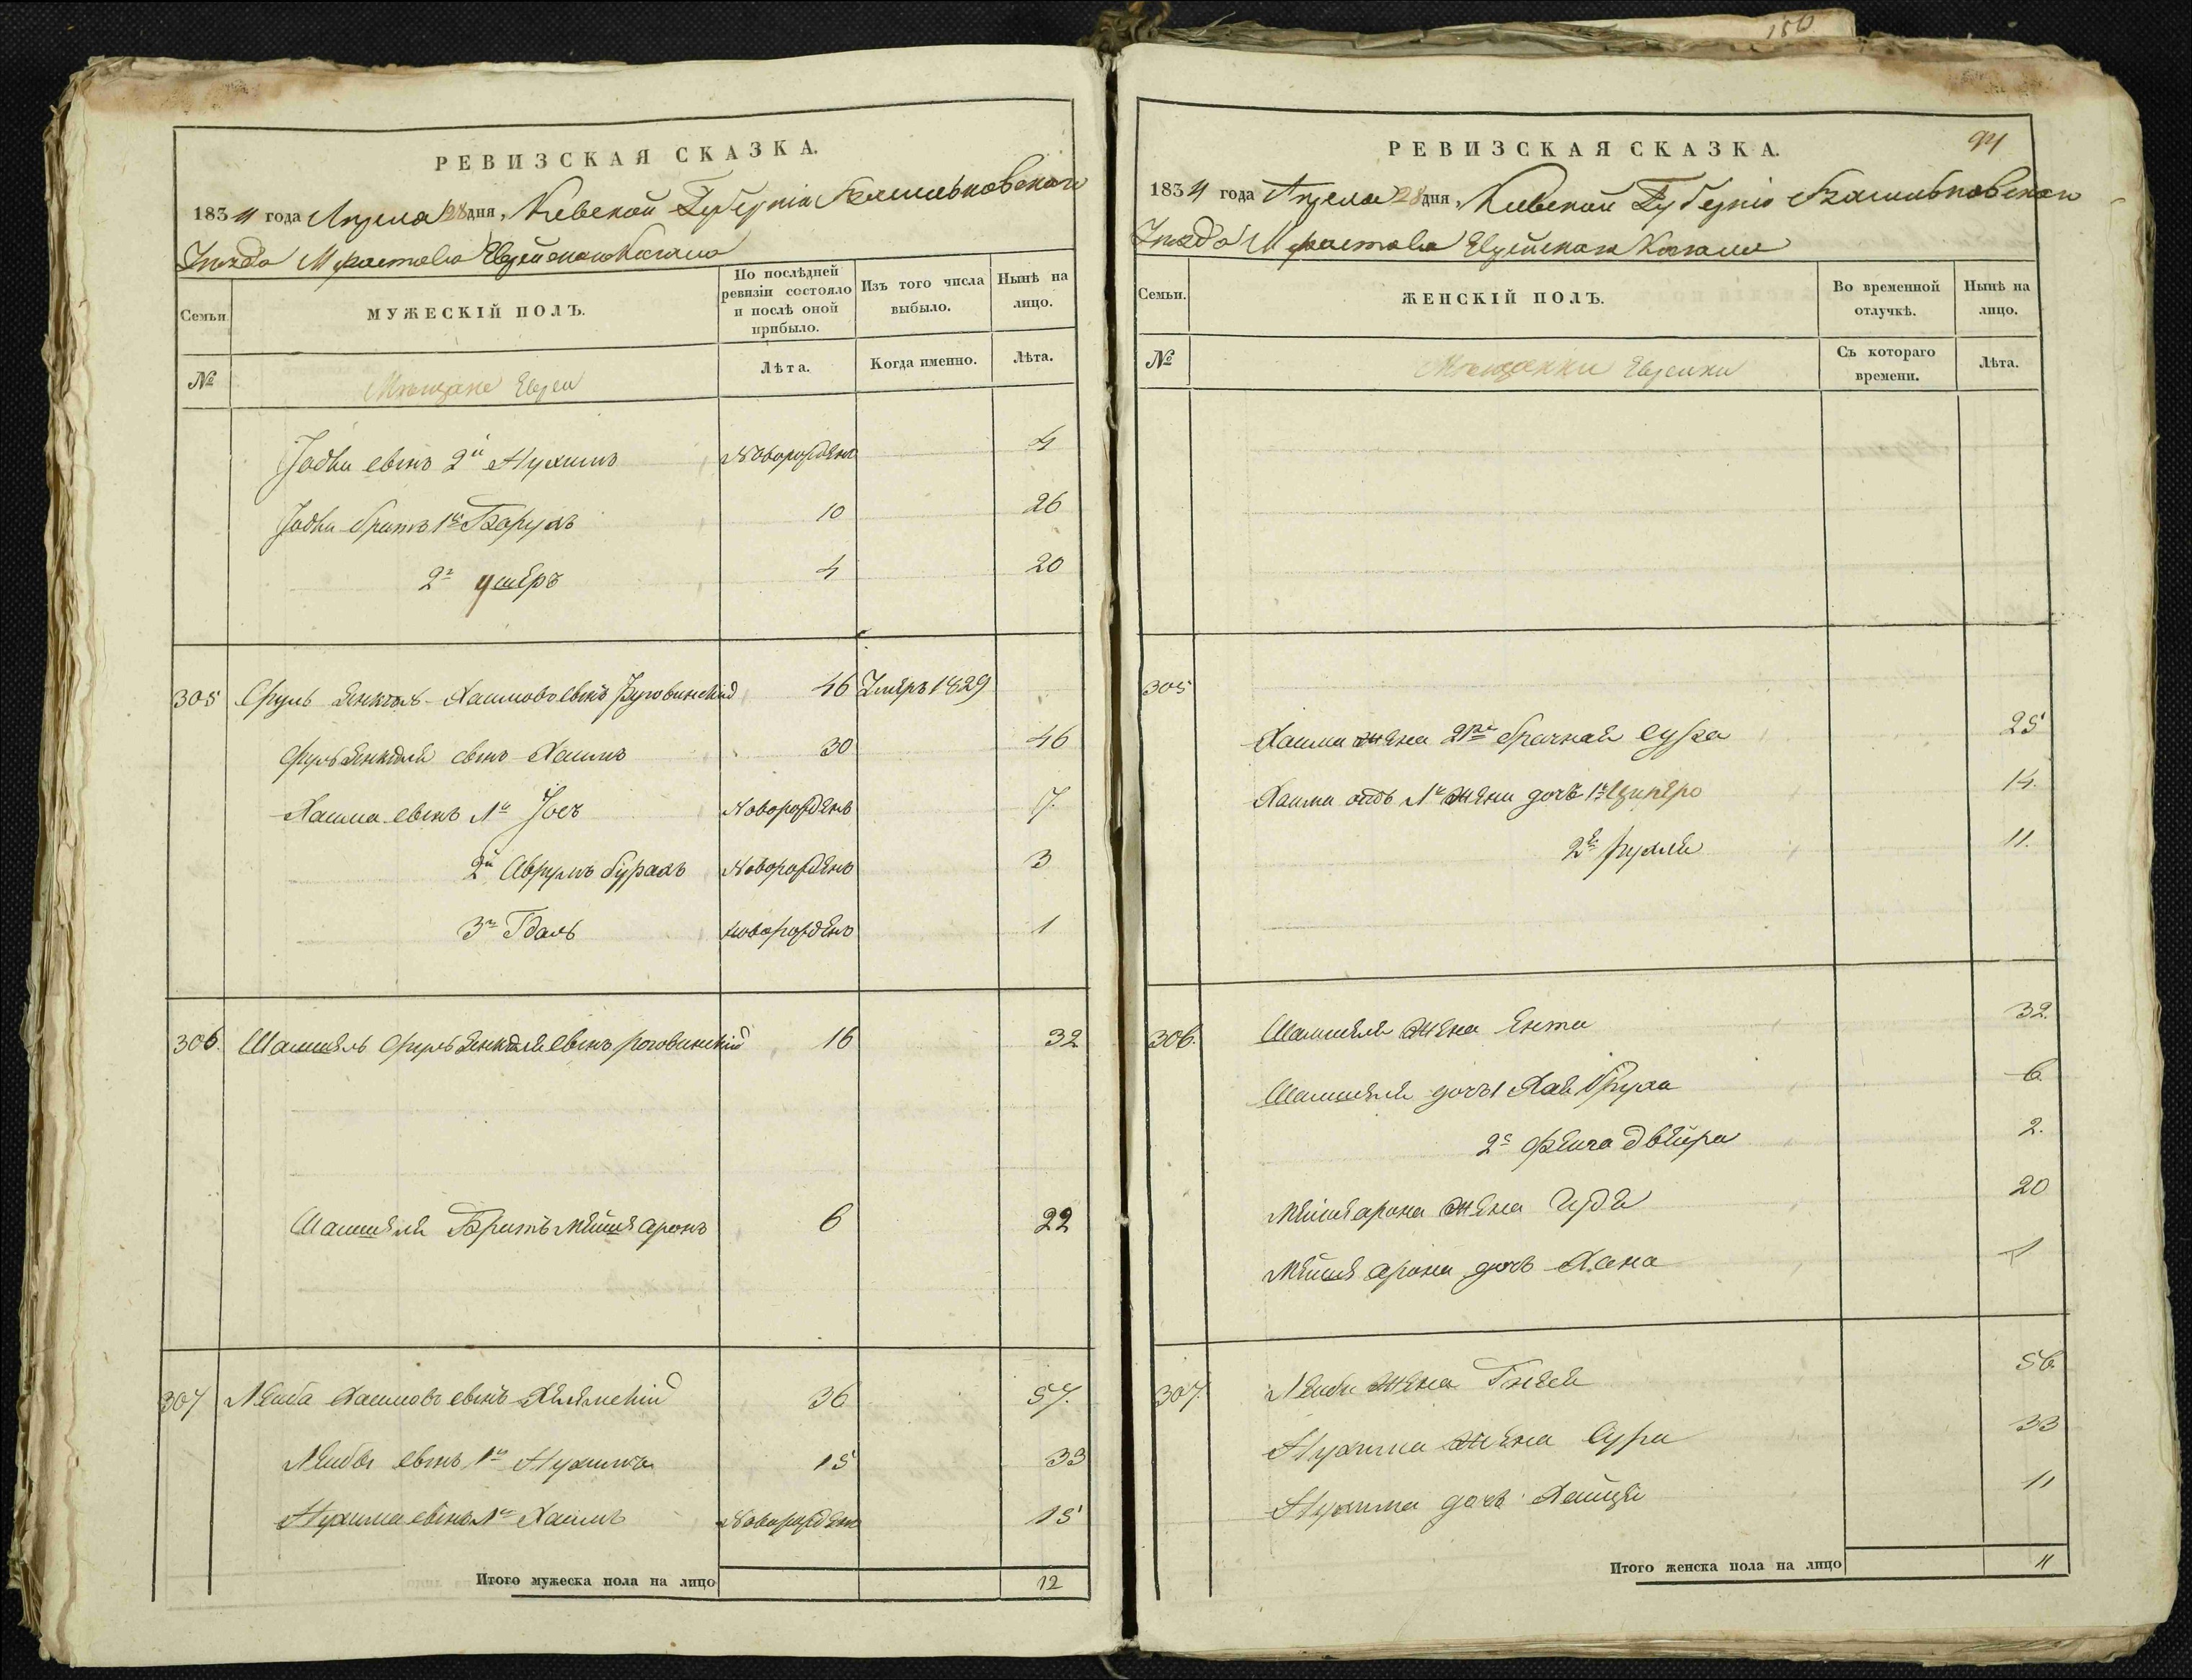 150
РЕВИЗСКАЯ СКАЗКА.
1834 года Апреля 28 дня, Киевской Губерніи Васильковского
Уезда М Фастова Еврейского Кагала
Семьи.
МУЖЕСКІЙ ПОЛЪ.
По послѣдней ревизіи состояло и послѣ оной прибыло.
Изъ того числа выбыло.
Нынѣ на лицо.
№
Мѣщане Евреи
Лѣта.
Когда именно.
Лѣта.
сынъ 2й Нухимъ Новорожденъ 4
братъ 1й Борухъ 10 26
2й Ушеръ 4 20
305 Сруль Янкель Хаимовъ сынъ 46 Умеръ 1829
Сруль Янкеля сынъ Хаимъ 30 46
Хаима сынъ 1й Іось Новорожденъ 7.
2й Аврумъ Новорожденъ 3
3й Гдаль новорожденъ 1
306. Шамшель Сруль Янкеля сынъ роговинскій 16 32
Шамшеля Братъ Мейше аронъ 6 22
307 Лейба Хаимовъ сынъ 36 57.
Лейбы сынъ 1й Нухимъ 15 33
Нухима сынъ 1й Хаимъ Новорожденъ 15
Итого мужеска пола на лицо 12
РЕВИЗСКАЯ СКАЗКА.
94
1834 года Апреля 28 дня, Киевской Губерніи Васильковского
Уезда М Фастова Еврейского Кагала
Семьи.
ЖЕНСКІЙ ПОЛЪ.
Во временной отлучкѣ.
Нынѣ на лицо.
№
Мѣщанки Еврейки
Съ котораго времени.
Лѣта.
305
Хаима жена 2го брачная Сура 25
Хаима отъ 1й жени дочь 1я Ципера 14.
2я Рухля 11.
306. Шамшеля жена Ента 32.
Шамшеля дочь 1 Хая Рухла 6.
2я Фейга Двейра 2.
Мейше арона жена Идя 20
Мейше арона дочь Хана 1
307. Лейбы жена Гнеся 56.
Нухима жена Сура 33
Нухима дочь Хайця 11
Итого женска пола на лицо 11